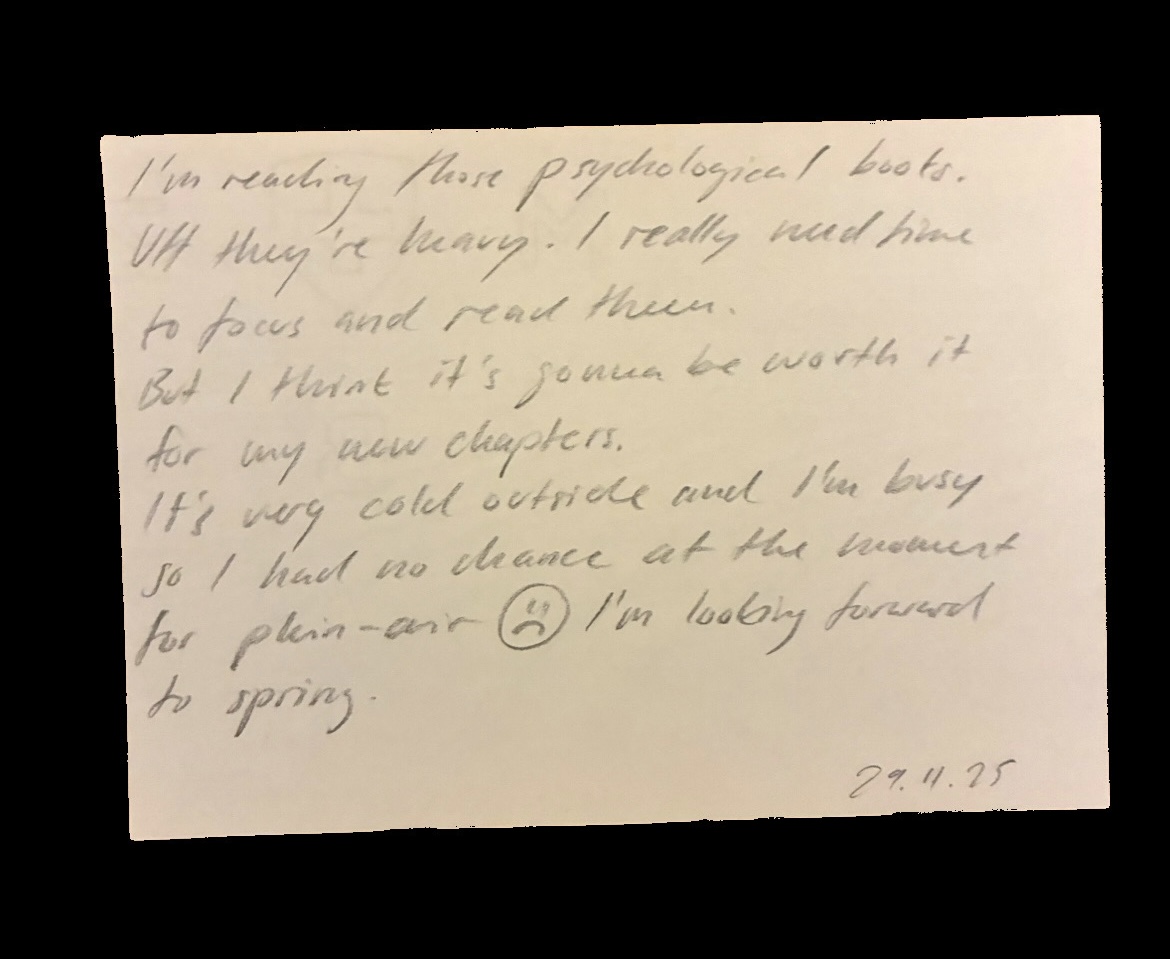 I'm reading those psychological books.
Uff they're heavy. I really need time
to focus and read them.
But I think it's gonna be worth it
for my new chapters.
It's very cold outside and I'm busy
so I had no chance at the moment
for plein-air ☹ I'm looking forward
to spring.
29.11.25